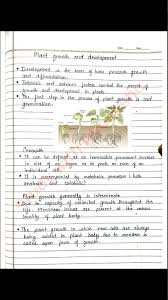 Plant growth and development
• Development is the sum of two processes growth
and differentiation.
• Intrinsic and extrinsic factors control the process of
growth and development in plants
• The first step in the process of plant growth is seed
germination.
Growth
• It can be defined as an irreversible permanent increase
in size of an organ or its parts or even of an
individual cell.
• It is accompanied by metabolic processes (both
anabolic and catabolic)
Plant growth generally is indeterminate
• Due to capacity of unlimited growth throughout the
life. Meristem tissues are present at the certain
locality of plant body.
• The plant growth in which new cells are always
being added to plant body due to meristem is
called open form of growth.